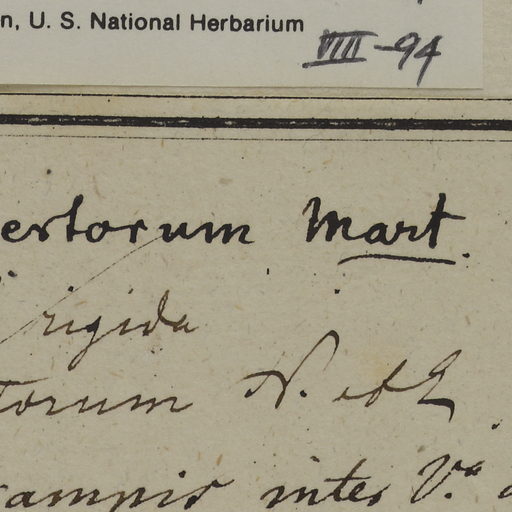 n, U. S. National Herbarium
VIII-94
ertorum Mart.
rigida
torum N. ab E.
campis inter V.a